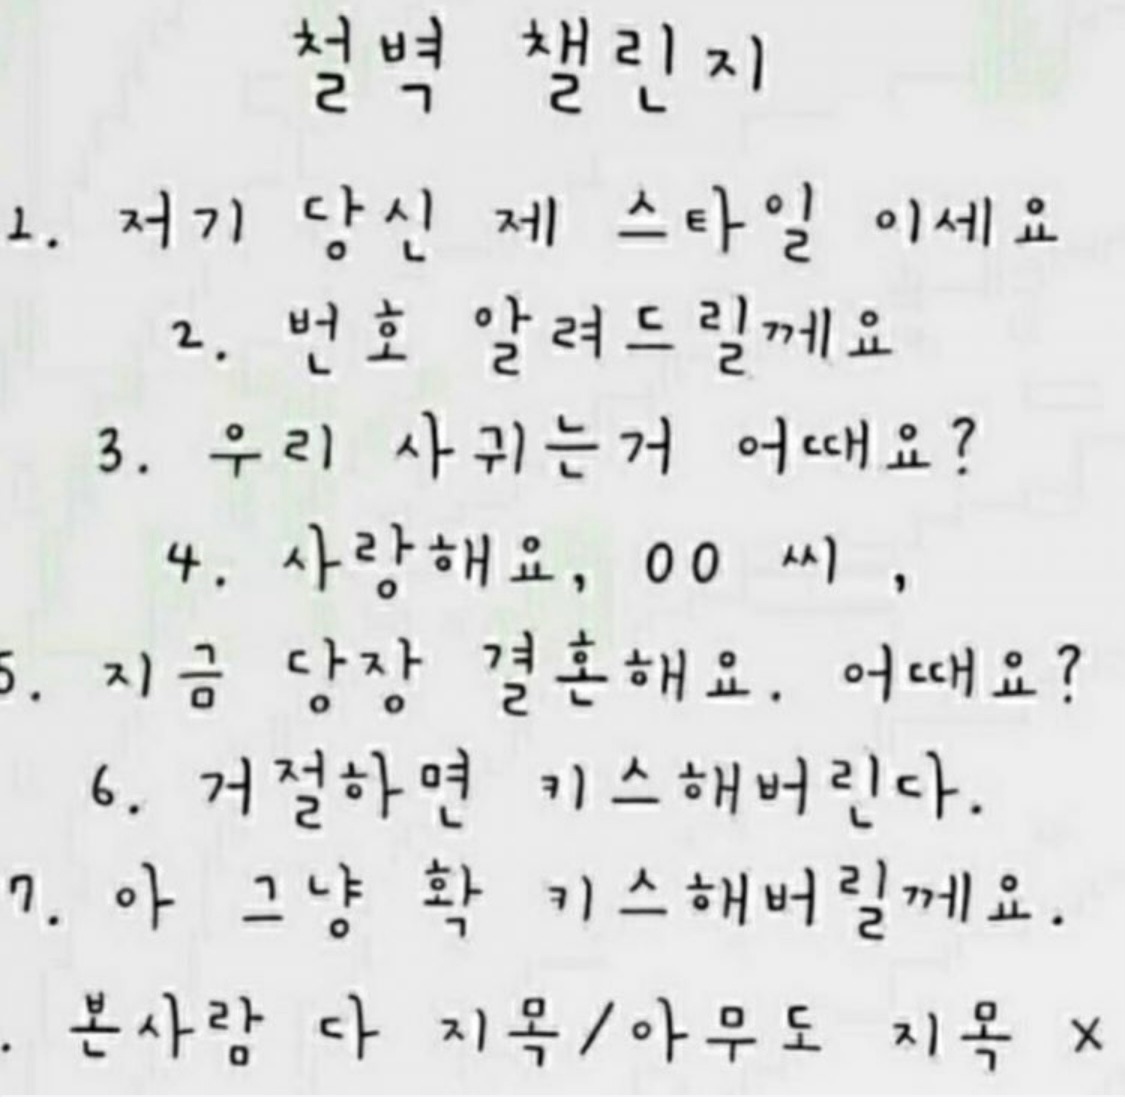 철벽 챌린지
1. 저기 당신 제 스타일 이세요
2. 번호 알려드릴께요
3. 우리 사귀는거 어때요?
4. 사랑해요, 00 씨 ,
5. 지금 당장 결혼해요. 어때요?
6. 거절하면 키스해버린다.
7. 아 그냥 확 키스해버릴께요.
. 본사람 다 지목/아무도 지목 x